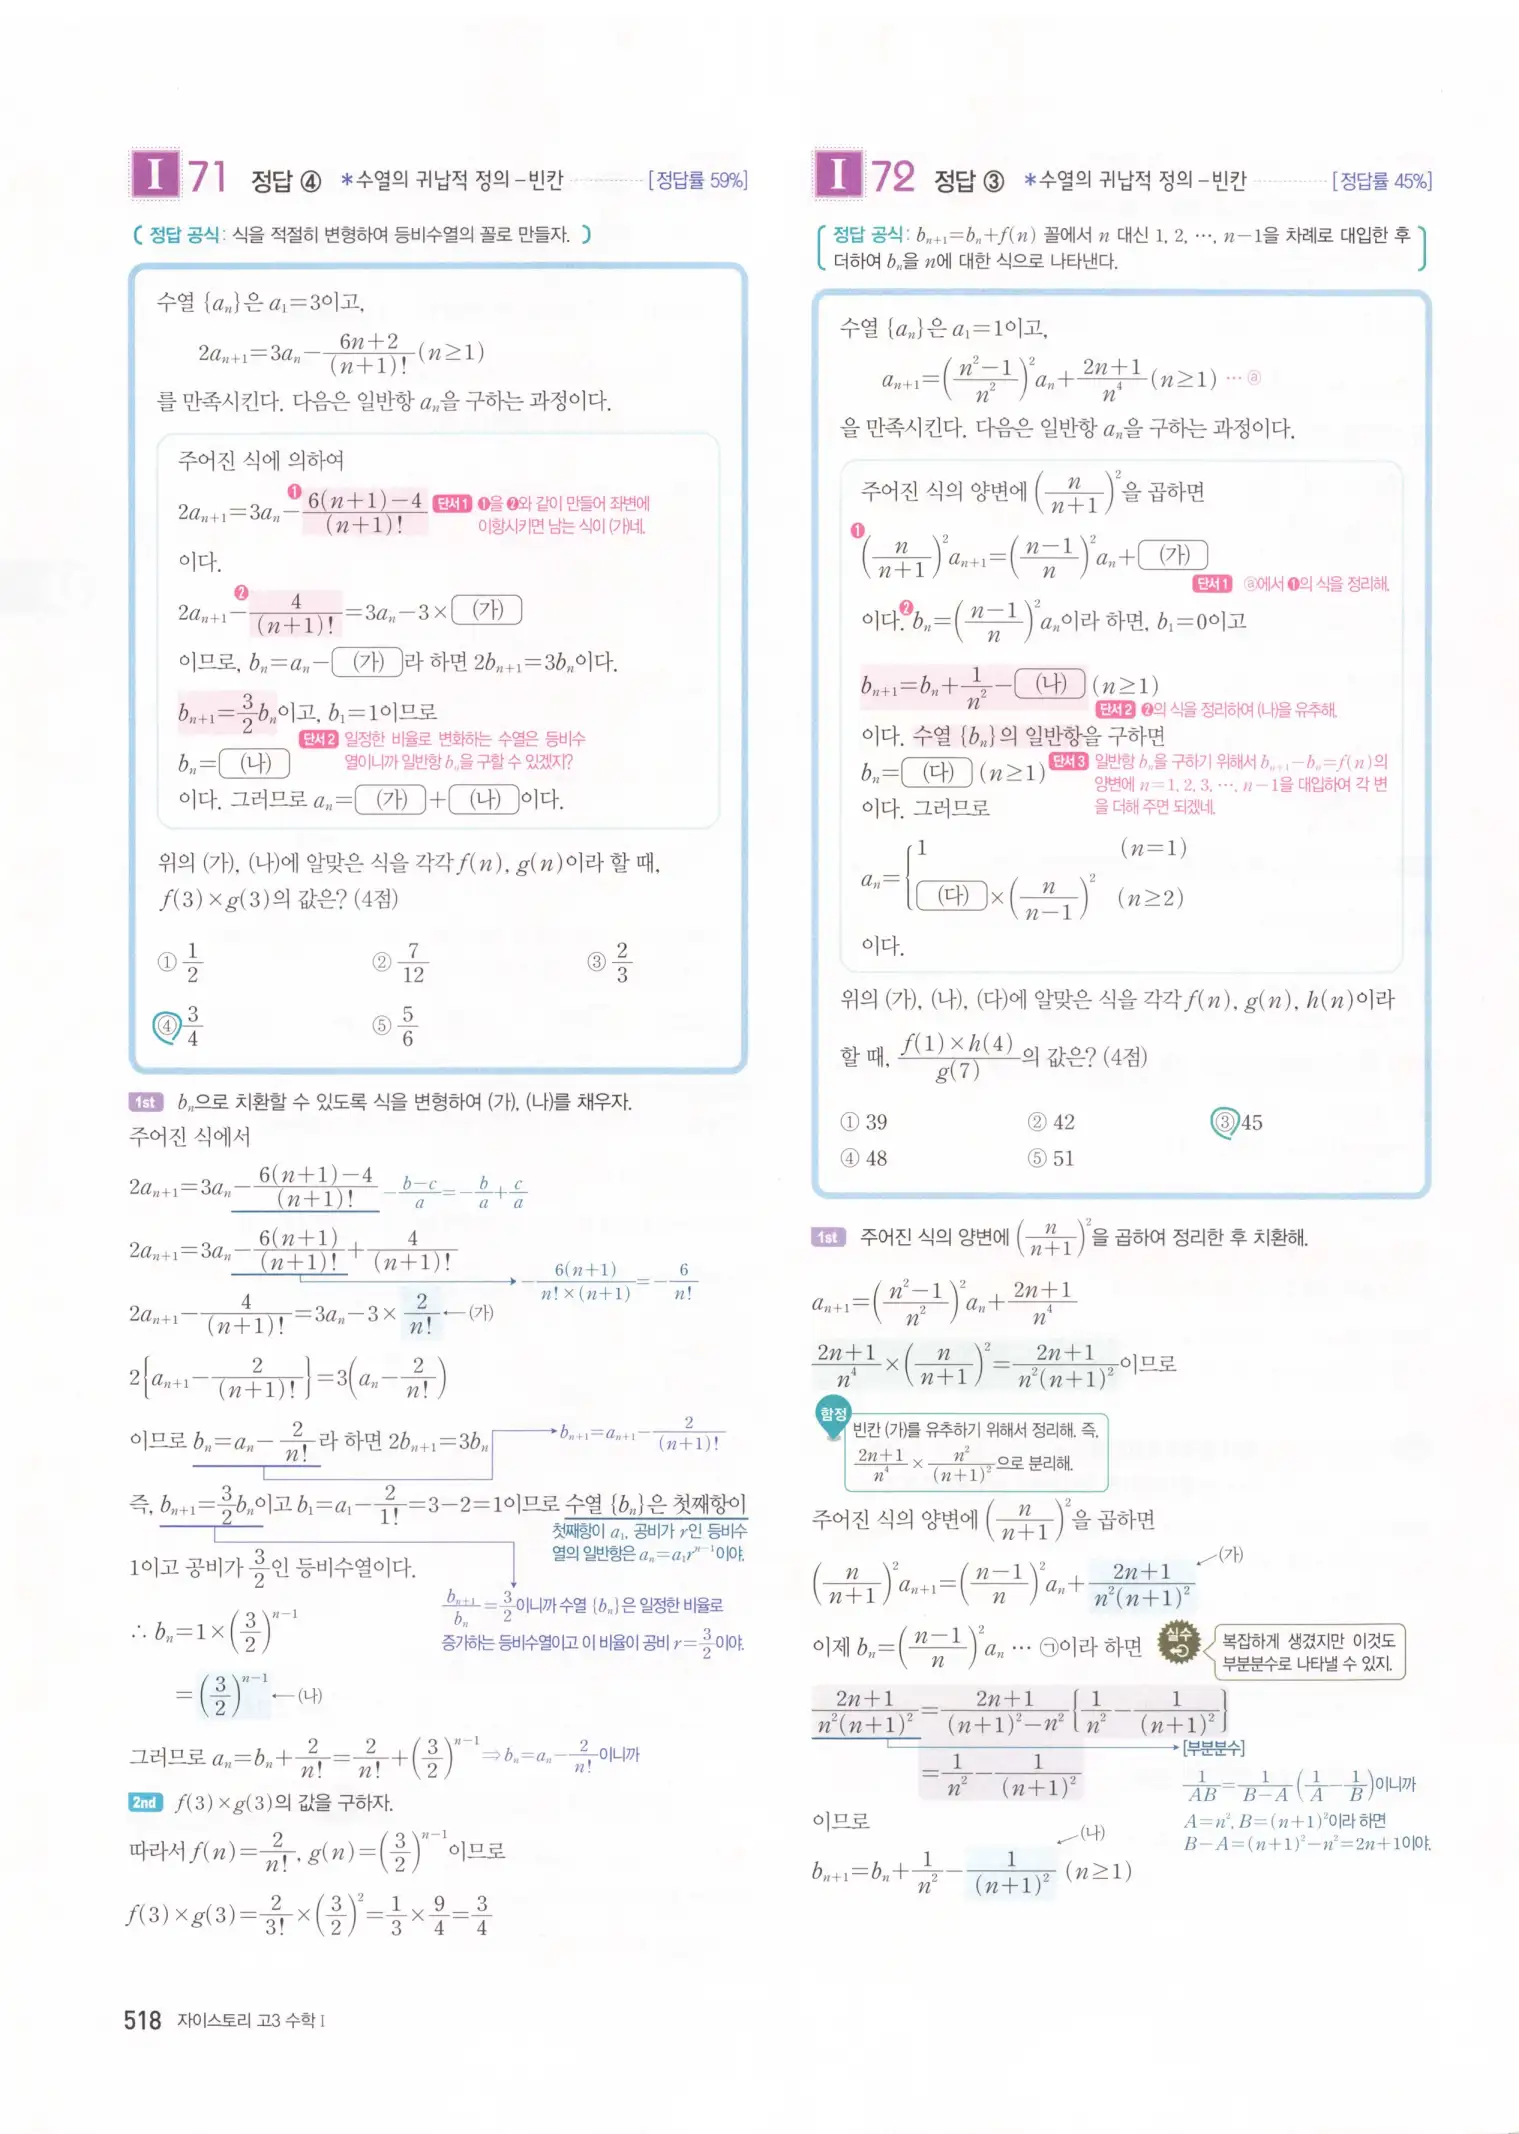 I 71 정답 ④ *수열의 귀납적 정의-빈칸 [정답률 59%]
( 정답 공식: 식을 적절히 변형하여 등비수열의 꼴로 만들자. )
수열 {aₙ}은 a₁=3이고,
2aₙ₊₁=3aₙ-(6n+2)/(n+1)! (n≥1)
를 만족시킨다. 다음은 일반항 aₙ을 구하는 과정이다.
주어진 식에 의하여
2aₙ₊₁=3aₙ-❶ (6(n+1)-4)/(n+1)! 단서1 ❶을 ❷와 같이 만들어 좌변에
이항시키면 남는 식이 (가)네.
이다.
2aₙ₊₁-❷ 4/(n+1)!=3aₙ-3×(가)
이므로, bₙ=aₙ-(가)라 하면 2bₙ₊₁=3bₙ이다.
bₙ₊₁=3/2 bₙ이고, b₁=1이므로
단서2 일정한 비율로 변화하는 수열은 등비수
열이니까 일반항 bₙ을 구할 수 있겠지?
bₙ=(나)
이다. 그러므로 aₙ=(가)+(나)이다.
위의 (가), (나)에 알맞은 식을 각각 f(n), g(n)이라 할 때,
f(3)×g(3)의 값은? (4점)
① 1/2 ② 7/12 ③ 2/3
④ 3/4 ⑤ 5/6
1st bₙ으로 치환할 수 있도록 식을 변형하여 (가), (나)를 채우자.
주어진 식에서
2aₙ₊₁=3aₙ-(6(n+1)-4)/(n+1)! -(b-c)/a=-b/a+c/a
2aₙ₊₁=3aₙ-6(n+1)/(n+1)!+4/(n+1)!
-6(n+1)/(n!×(n+1))=-6/n!
2aₙ₊₁-4/(n+1)!=3aₙ-3×2/n! ←(가)
2{aₙ₊₁-2/(n+1)!}=3(aₙ-2/n!)
이므로 bₙ=aₙ-2/n!라 하면 2bₙ₊₁=3bₙ bₙ₊₁=aₙ₊₁-2/(n+1)!
즉, bₙ₊₁=3/2 bₙ이고 b₁=a₁-2/1!=3-2=1이므로 수열 {bₙ}은 첫째항이
첫째항이 a₁, 공비가 r인 등비수
열의 일반항은 aₙ=a₁rⁿ⁻¹이야.
1이고 공비가 3/2인 등비수열이다.
bₙ₊₁/bₙ=3/2이니까 수열 {bₙ}은 일정한 비율로
증가하는 등비수열이고 이 비율이 공비 r=3/2이야.
∴ bₙ=1×(3/2)ⁿ⁻¹
=(3/2)ⁿ⁻¹ ←(나)
그러므로 aₙ=bₙ+2/n!=2/n!+(3/2)ⁿ⁻¹ ⇒bₙ=aₙ-2/n!이니까
2nd f(3)×g(3)의 값을 구하자.
따라서 f(n)=2/n!, g(n)=(3/2)ⁿ⁻¹이므로
f(3)×g(3)=2/3!×(3/2)²=1/3×9/4=3/4
518 자이스토리 고3 수학 I
I 72 정답 ③ *수열의 귀납적 정의-빈칸 [정답률 45%]
( 정답 공식: bₙ₊₁=bₙ+f(n) 꼴에서 n 대신 1, 2, …, n-1을 차례로 대입한 후
더하여 bₙ을 n에 대한 식으로 나타낸다. )
수열 {aₙ}은 a₁=1이고,
aₙ₊₁=((n²-1)/n²)²aₙ+(2n+1)/n⁴ (n≥1) …ⓐ
을 만족시킨다. 다음은 일반항 aₙ을 구하는 과정이다.
주어진 식의 양변에 (n/(n+1))²을 곱하면
❶ (n/(n+1))²aₙ₊₁=((n-1)/n)²aₙ+(가)
단서1 ⓐ에서 ❶의 식을 정리해.
이다. ❷ bₙ=((n-1)/n)²aₙ이라 하면, b₁=0이고
bₙ₊₁=bₙ+1/n²-(나) (n≥1)
단서2 ❷의 식을 정리하여 (나)을 유추해.
이다. 수열 {bₙ}의 일반항을 구하면
bₙ=(다) (n≥1) 단서3 일반항 bₙ을 구하기 위해서 bₙ₊₁-bₙ=f(n)의
양변에 n=1, 2, 3, …, n-1을 대입하여 각 변
을 더해 주면 되겠네.
이다. 그러므로
aₙ={1 (n=1)
(다)×(n/(n-1))² (n≥2)
이다.
위의 (가), (나), (다)에 알맞은 식을 각각 f(n), g(n), h(n)이라
할 때, (f(1)×h(4))/g(7)의 값은? (4점)
① 39 ② 42 ③ 45
④ 48 ⑤ 51
1st 주어진 식의 양변에 (n/(n+1))²을 곱하여 정리한 후 치환해.
aₙ₊₁=((n²-1)/n²)²aₙ+(2n+1)/n⁴
(2n+1)/n⁴×(n/(n+1))²=(2n+1)/(n²(n+1)²)이므로
함정 빈칸 (가)를 유추하기 위해서 정리해. 즉,
(2n+1)/n⁴×n²/(n+1)²으로 분리해.
주어진 식의 양변에 (n/(n+1))²을 곱하면
(n/(n+1))²aₙ₊₁=((n-1)/n)²aₙ+(2n+1)/(n²(n+1)²) (가)
이제 bₙ=((n-1)/n)²aₙ … ㉠이라 하면 실수 복잡하게 생겼지만 이것도
부분분수로 나타낼 수 있지.
(2n+1)/(n²(n+1)²)=(2n+1)/((n+1)²-n²){1/n²-1/(n+1)²}
=1/n²-1/(n+1)²
[부분분수]
1/AB=1/(B-A)(1/A-1/B)이니까
A=n², B=(n+1)²이라 하면
B-A=(n+1)²-n²=2n+1이야.
이므로
bₙ₊₁=bₙ+1/n²-1/(n+1)² (n≥1) (나)